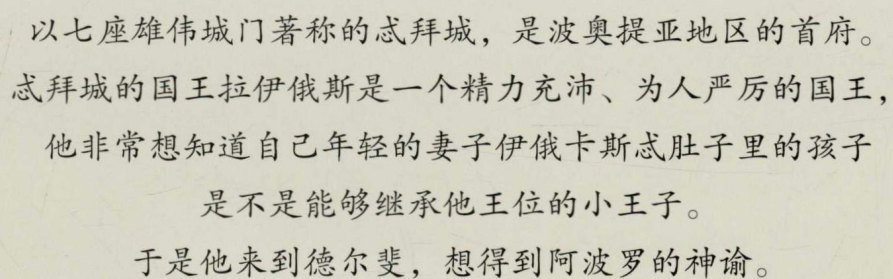 以七座雄伟城门著称的忒拜城，是波奥提亚地区的首府。
忒拜城的国王拉伊俄斯是一个精力充沛、为人严厉的国王，
他非常想知道自己年轻的妻子伊俄卡斯忒肚子里的孩子
是不是能够继承他王位的小王子。
于是他来到德尔斐，想得到阿波罗的神谕。